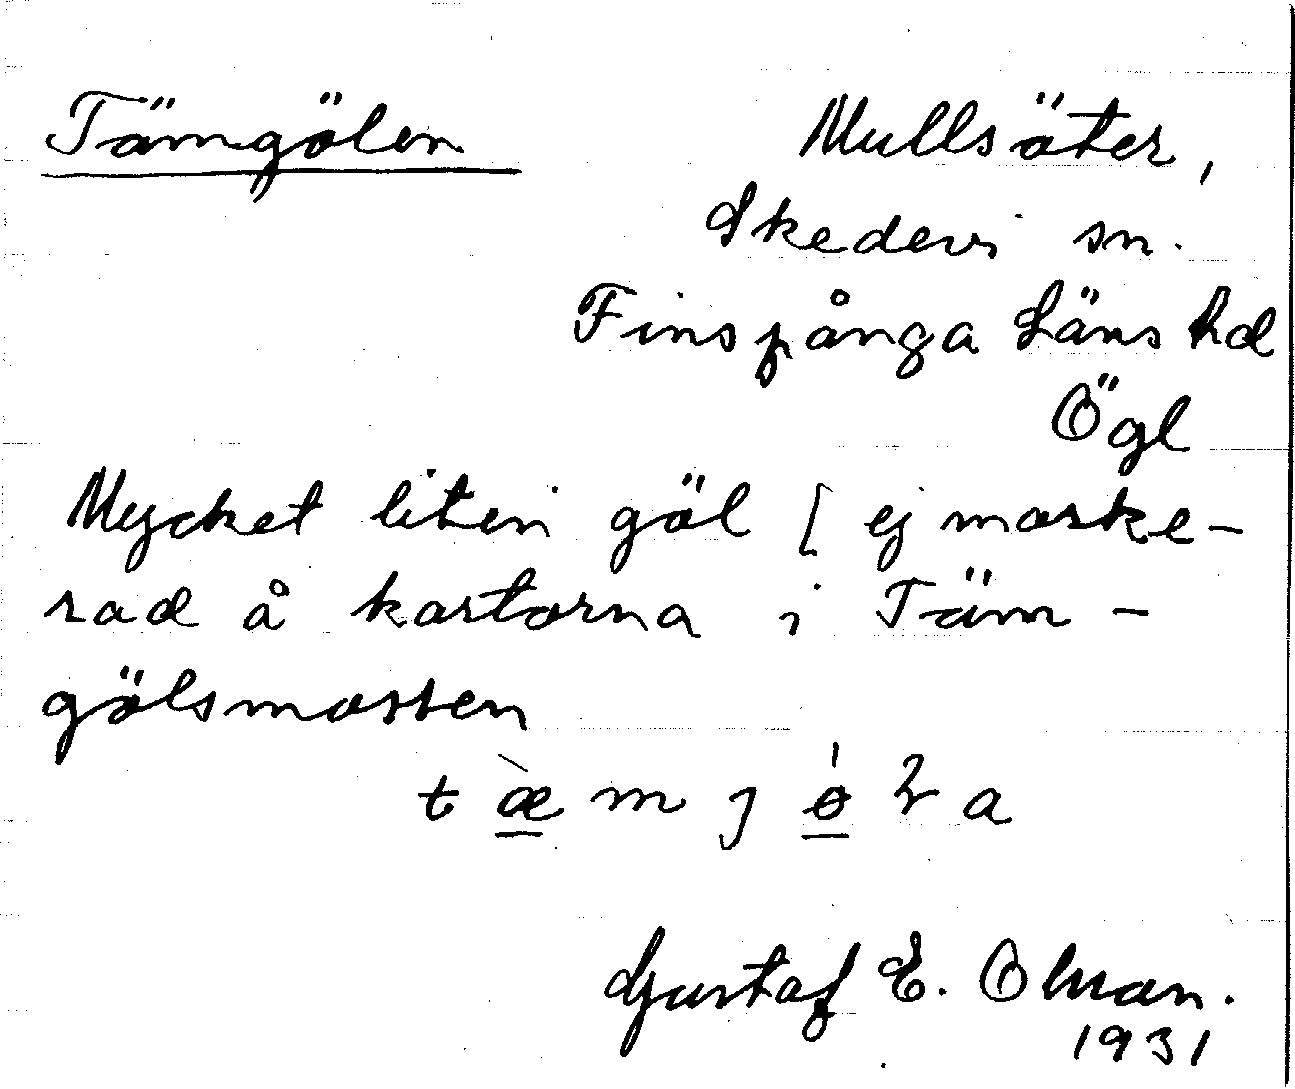 Tämgölen
Mullsäter,
Skedevi sn.
Finspånga Läns hd
Ögl
Mycket liten göl [ ej marke-
rad å kartorna i Täm-
gölsmossen
Gustaf E. Olsson.
1931